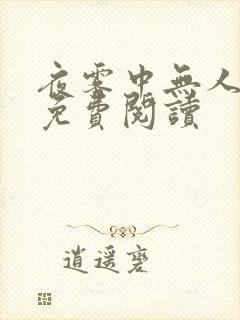 夜雾中無人
免費閱讀
逍遥麐